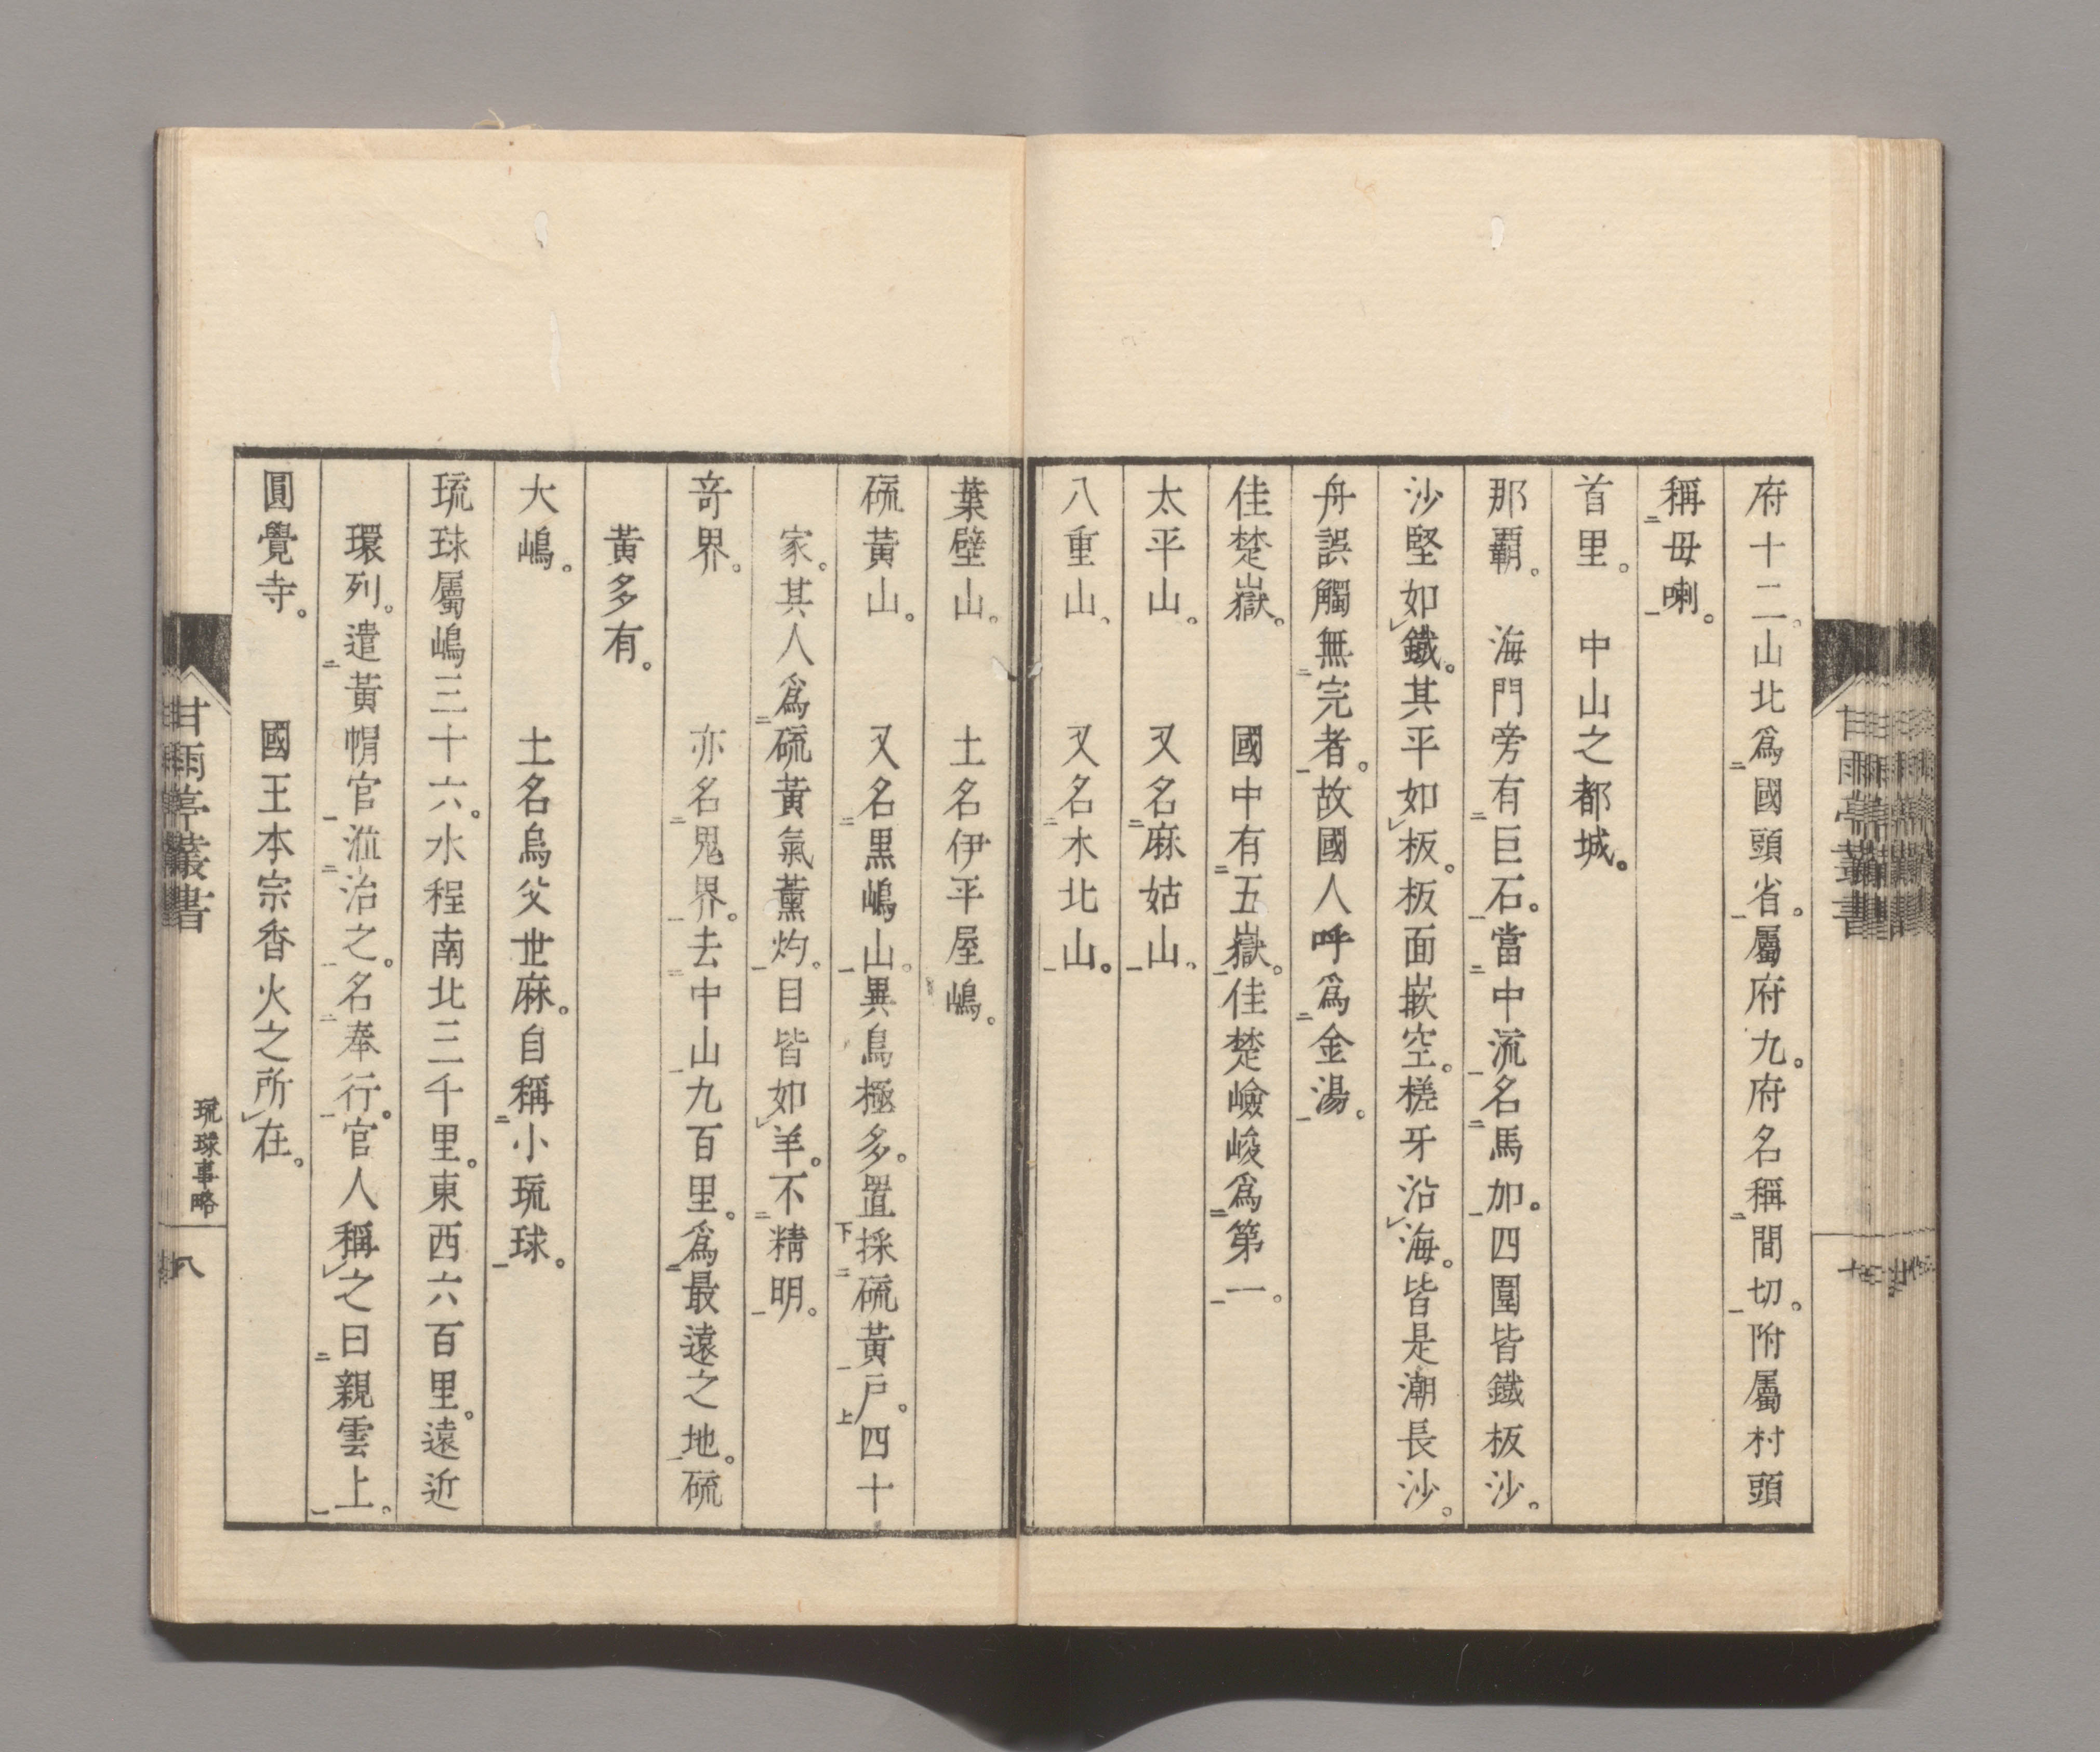 府十二。山北爲國頭省。屬府九。府名稱間切。附屬村頭
稱毋喇。
首里。　中山之都城。
那霸。　海門旁有巨石。當中流。名馬加。四圍皆鐵板沙。
沙堅如鐵。其平如板。板面嵌空。槎牙沿海。皆是潮長沙。
舟誤觸無完者。故國人呼爲金湯。
佳楚嶽。　國中有五嶽。佳楚嶮峻爲第一。
太平山。　又名麻姑山。
八重山。　又名木北山。
葉壁山。　土名伊平屋嶋。
硫黃山。　又名黒嶋山。異鳥極多。置採硫黃戶。四十
家。其人爲硫黃氣薰灼。目皆如羊。不精明。
奇界。　亦名鬼界。去中山九百里。爲最遠之地。硫
黃多有。
大嶋。　土名烏父世麻。自稱小琉球。
琉球屬嶋三十六。水程南北三千里。東西六百里。遠近
環列。遣黃㡌官涖治之。名奉行。官人稱之曰親雲上。
圓覺寺。　國王本宗香火之所在。
甘雨亭叢書
琉球事略
八